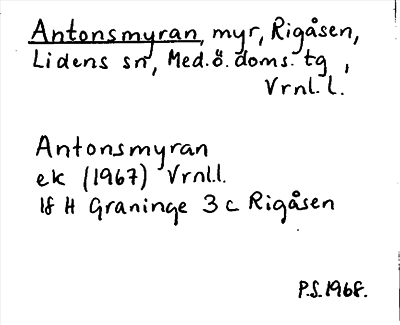 Antonsmyran, myr, Rigåsen,
Lidens sn, Med.ö. doms. tg,
Vrnl.l.
Antonsmyran
ek (1967) Vrnl.l.
18 H Graninge 3 c Rigåsen
P.S. 1968.